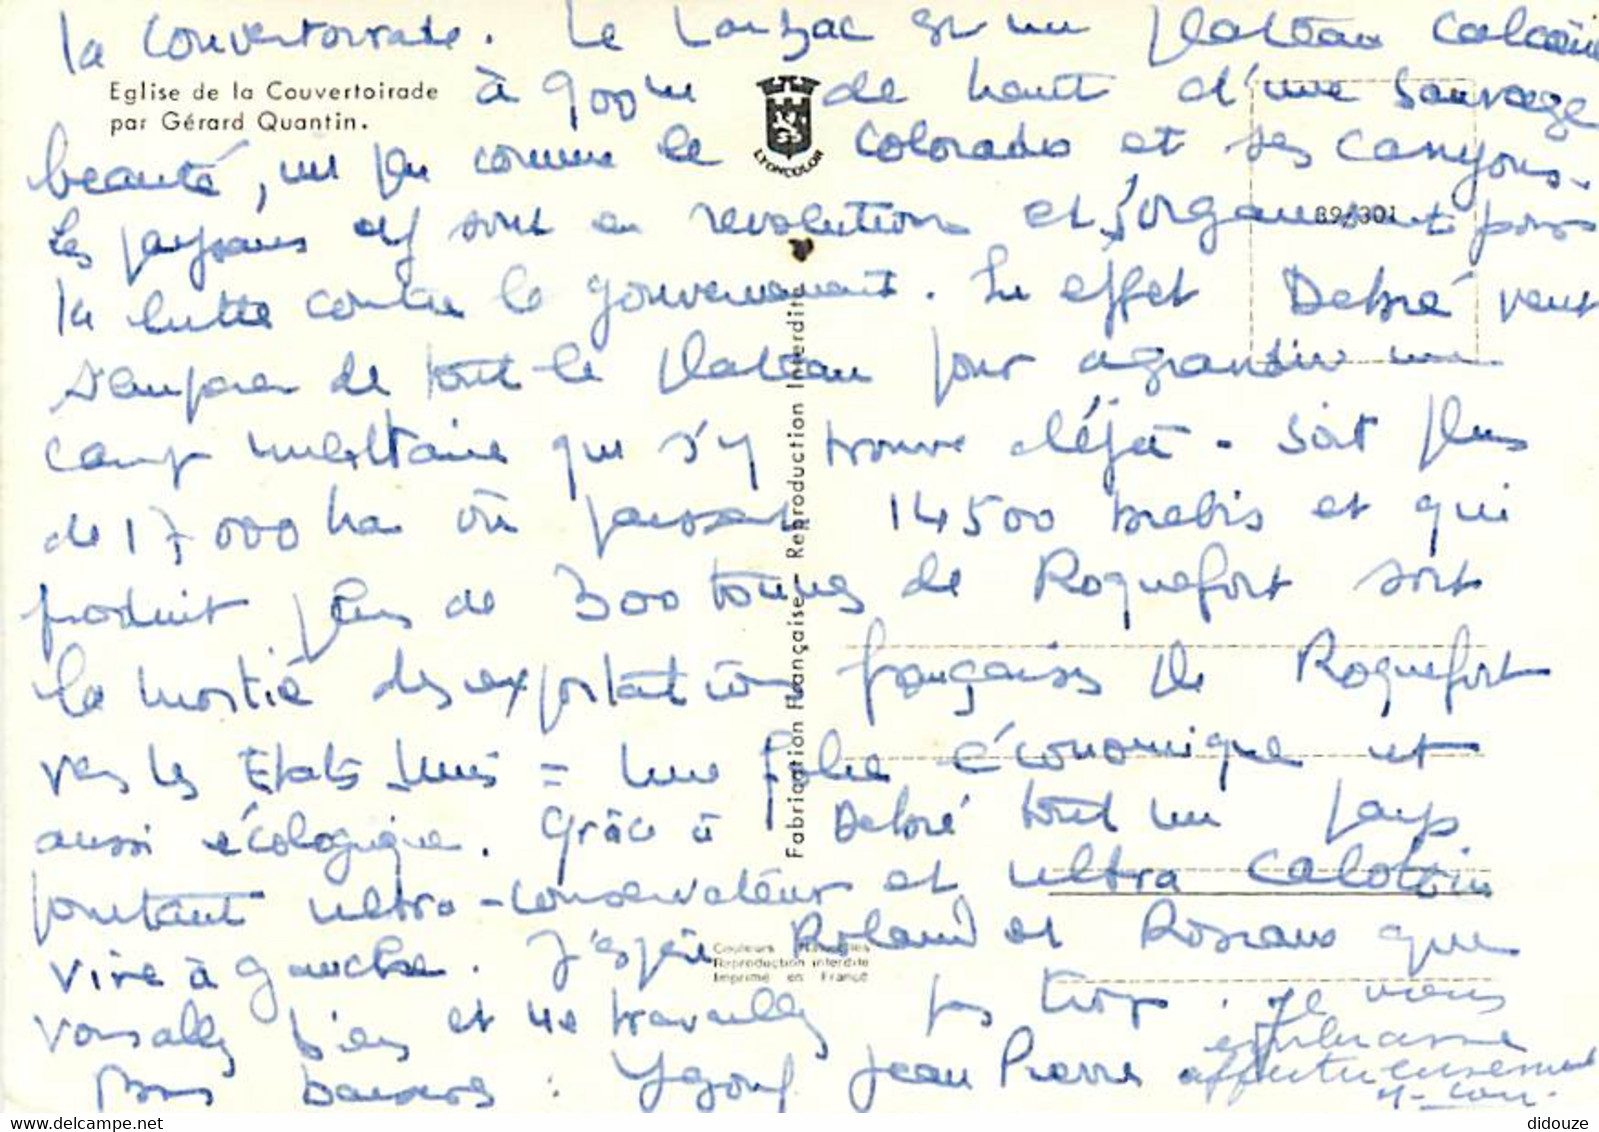 la Couvertoirade. Le Larzac est un plateau calcaire
Eglise de la Couvertoirade
par Gérard Quantin.
à 900m de haut d'une sauvage
LYONCOLOR
beauté, un peu comme le Colorado et ses canyons.
89/301
Les paysans y sont en révolution et s'organisent pour
la lutte contre le gouvernement. En effet Debré veut
s'emparer de tout le plateau pour agrandir un
camp militaire qui s'y trouve déjà - soit plus
de 17000 ha où paissent 14500 brebis et qui
produit plus de 300 tonnes de Roquefort soit
la moitié des exportations françaises de Roquefort
vers les Etats Unis = une folie économique et
aussi écologique. Grâce à Debré tout un pays
pourtant ultra-conservateur et ultra calotin
vire à gauche. J'espère Roland et que
vous allez bien et ne travaillez pas trop. Je vous
embrasse
affectueusement
Bons baisers : Jean Pierre
Fabrication Française - Reproduction Interdite
Couleurs Naturelles
Reproduction interdite
Imprimé en France
didouze